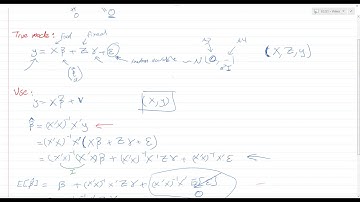 0
True model:
fixed
fixed
y = Xβ + Zγ + ε
random variable ~ N(0, σ²I)
(X, Z, y)
Use:
y = Xβ + v
(X, y)
β̂ = (X'X)⁻¹X'y
= (X'X)⁻¹X'(Xβ + Zγ + ε)
= (X'X)⁻¹X'Xβ + (X'X)⁻¹X'Zγ + (X'X)⁻¹X'ε
I
E[β̂] = β + (X'X)⁻¹X'Zγ + (X'X)⁻¹X'E[ε]
0